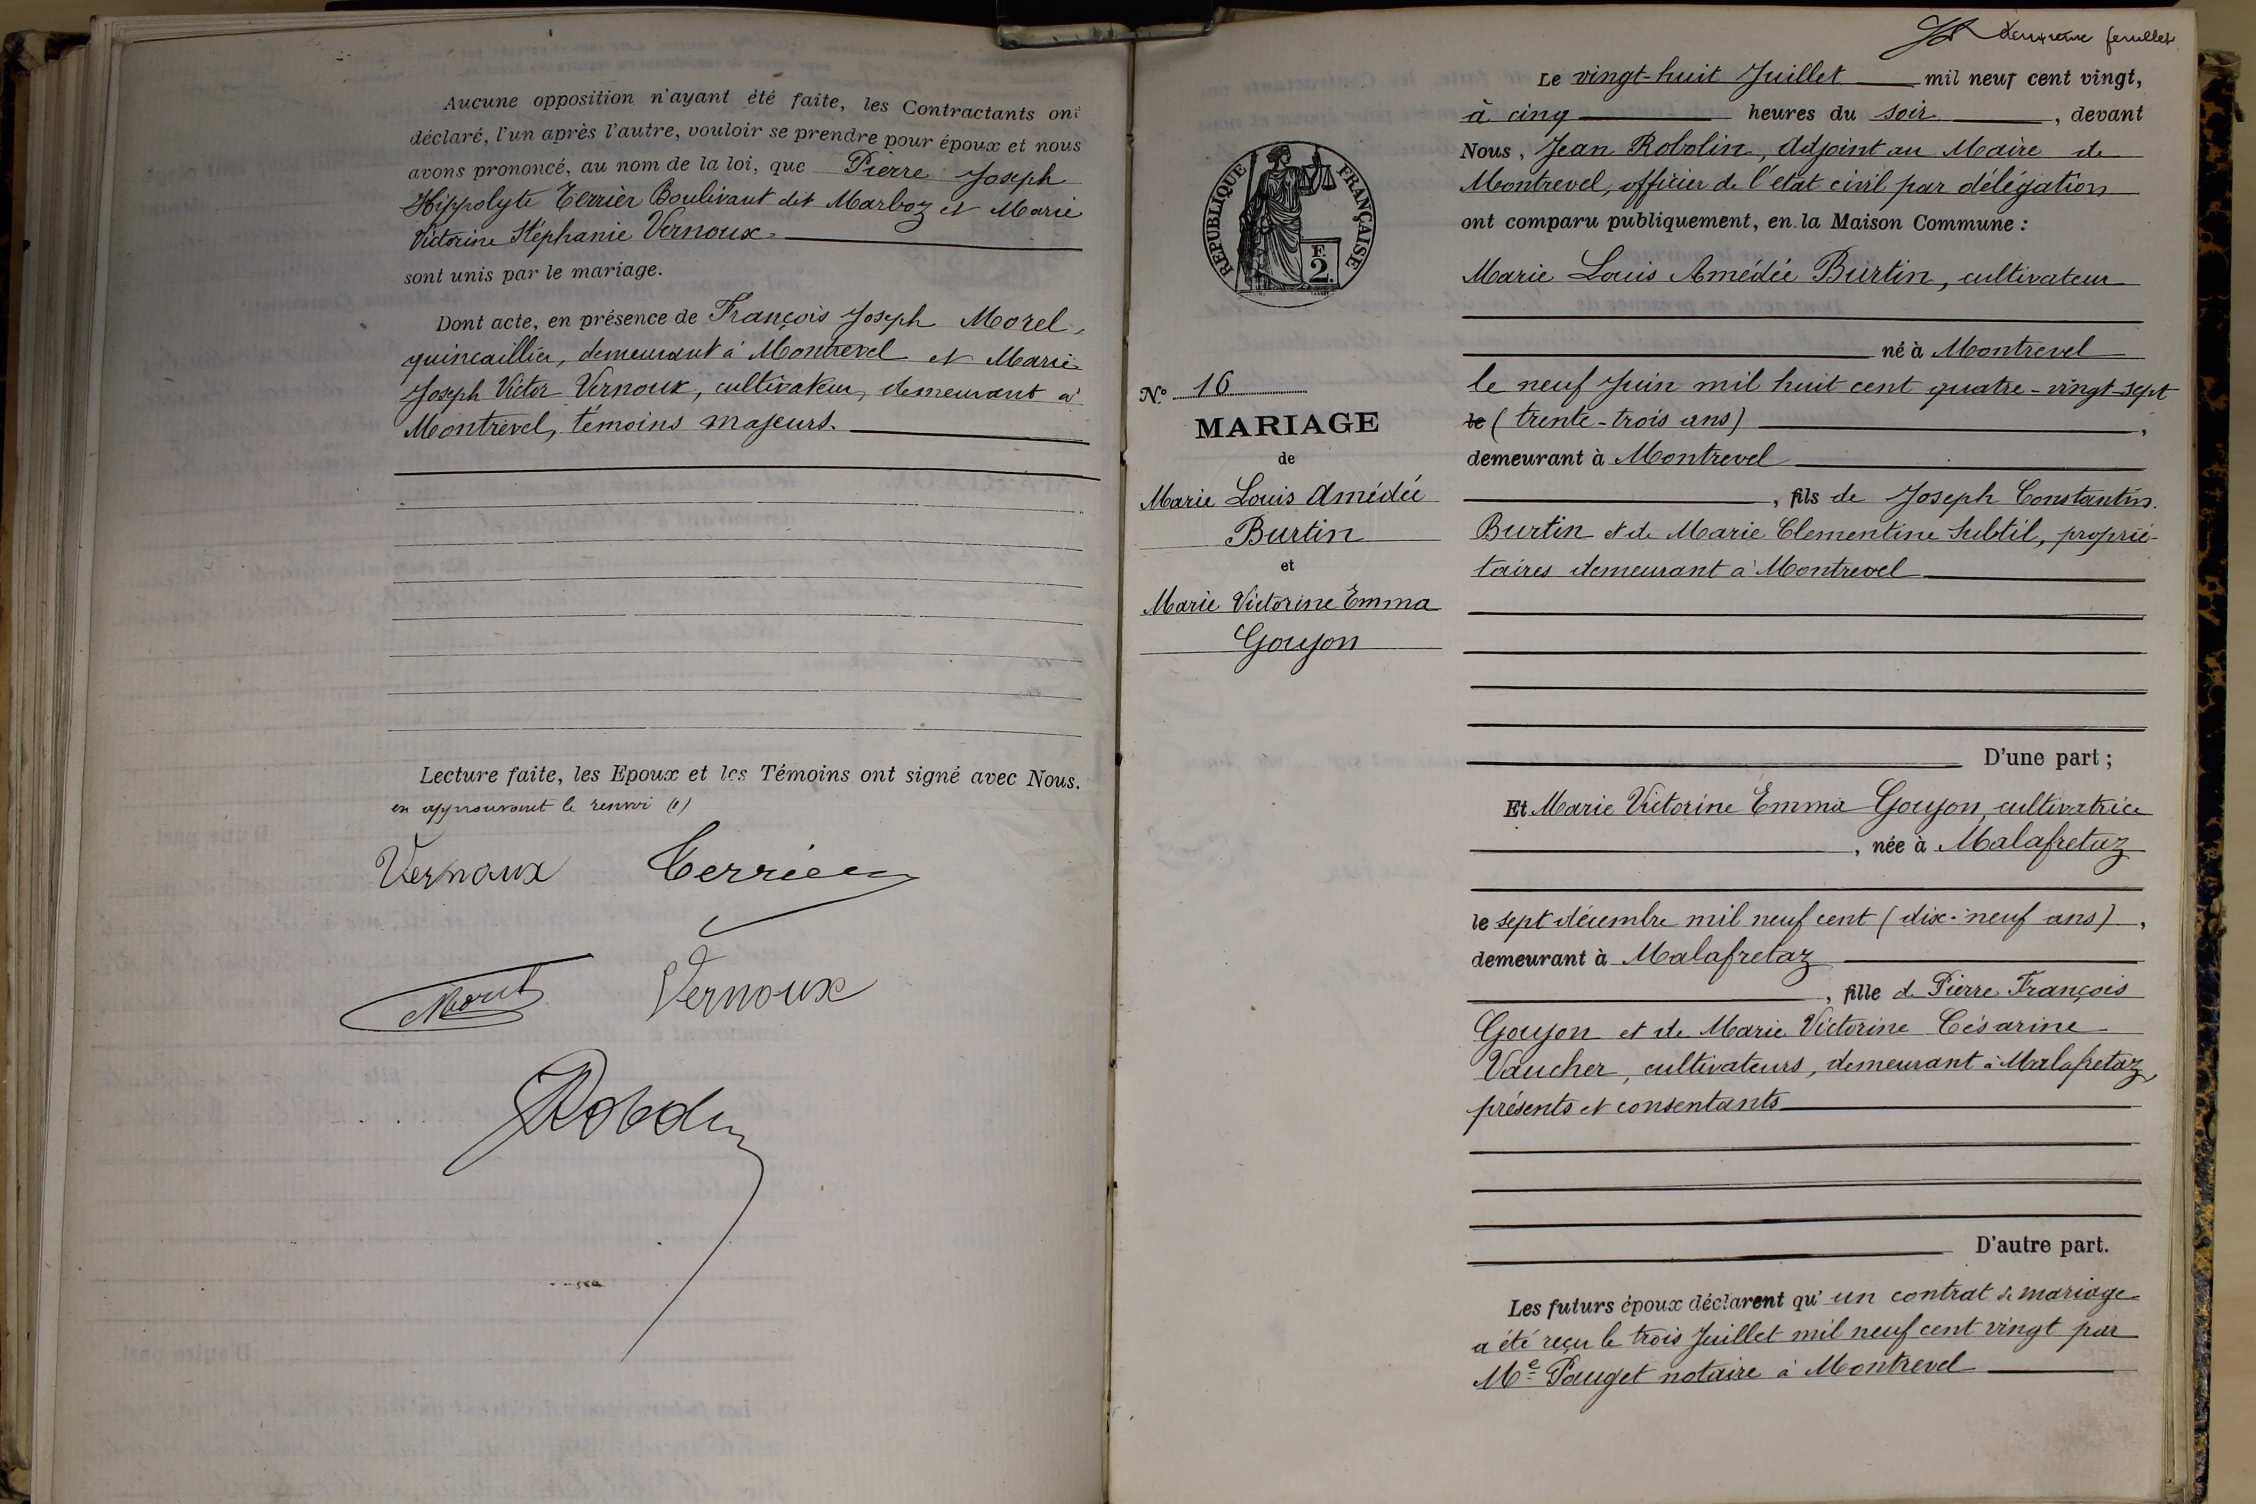 Aucune opposition n'ayant été faite, les Contractants ont
déclaré, l'un après l'autre, vouloir se prendre pour époux et nous
avons prononcé, au nom de la loi, que Pierre Joseph
Hippolyte Terrier Boulivant dit Marboz et Marie
Victorine Stéphanie Vernoux
sont unis par le mariage.
Dont acte, en présence de François Joseph Morel,
quincaillier, demeurant à Montrevel et Marie
Joseph Victor Vernoux, cultivateur, demeurant à
Montrevel, témoins majeurs.
Lecture faite, les Epoux et les Témoins ont signé avec Nous.
en approuvant le renvoi (1)
Vernoux Terrier
Morel Vernoux
Robolin
deuxième feuillet
Le vingt-huit Juillet mil neuf cent vingt,
à cinq heures du soir, devant
Nous, Jean Robolin, Adjoint au Maire de
Montrevel, officier de l'état civil par délégation
ont comparu publiquement, en la Maison Commune :
Marie Louis Amédée Burtin, cultivateur
né à Montrevel
le neuf Juin mil huit cent quatre-vingt-sept
le (trente-trois ans),
demeurant à Montrevel
, fils de Joseph Constantin
Burtin et de Marie Clementine Subtil, proprié-
taires demeurant à Montrevel
D'une part ;
Et Marie Victorine Emma Goujon, cultivatrice
, née à Malafretaz
le sept décembre mil neuf cent (dix-neuf ans),
demeurant à Malafretaz
, fille de Pierre François
Goujon et de Marie Victorine Césarine
Vaucher, cultivateurs, demeurant à Malafretaz,
présents et consentants
D'autre part.
Les futurs époux déclarent qu'un contrat de mariage
a été reçu le trois Juillet mil neuf cent vingt par
Me Pauget notaire à Montrevel
RÉPUBLIQUE FRANÇAISE
F.
2.
N° 16
MARIAGE
de
Marie Louis Amédée
Burtin
et
Marie Victorine Emma
Goujon